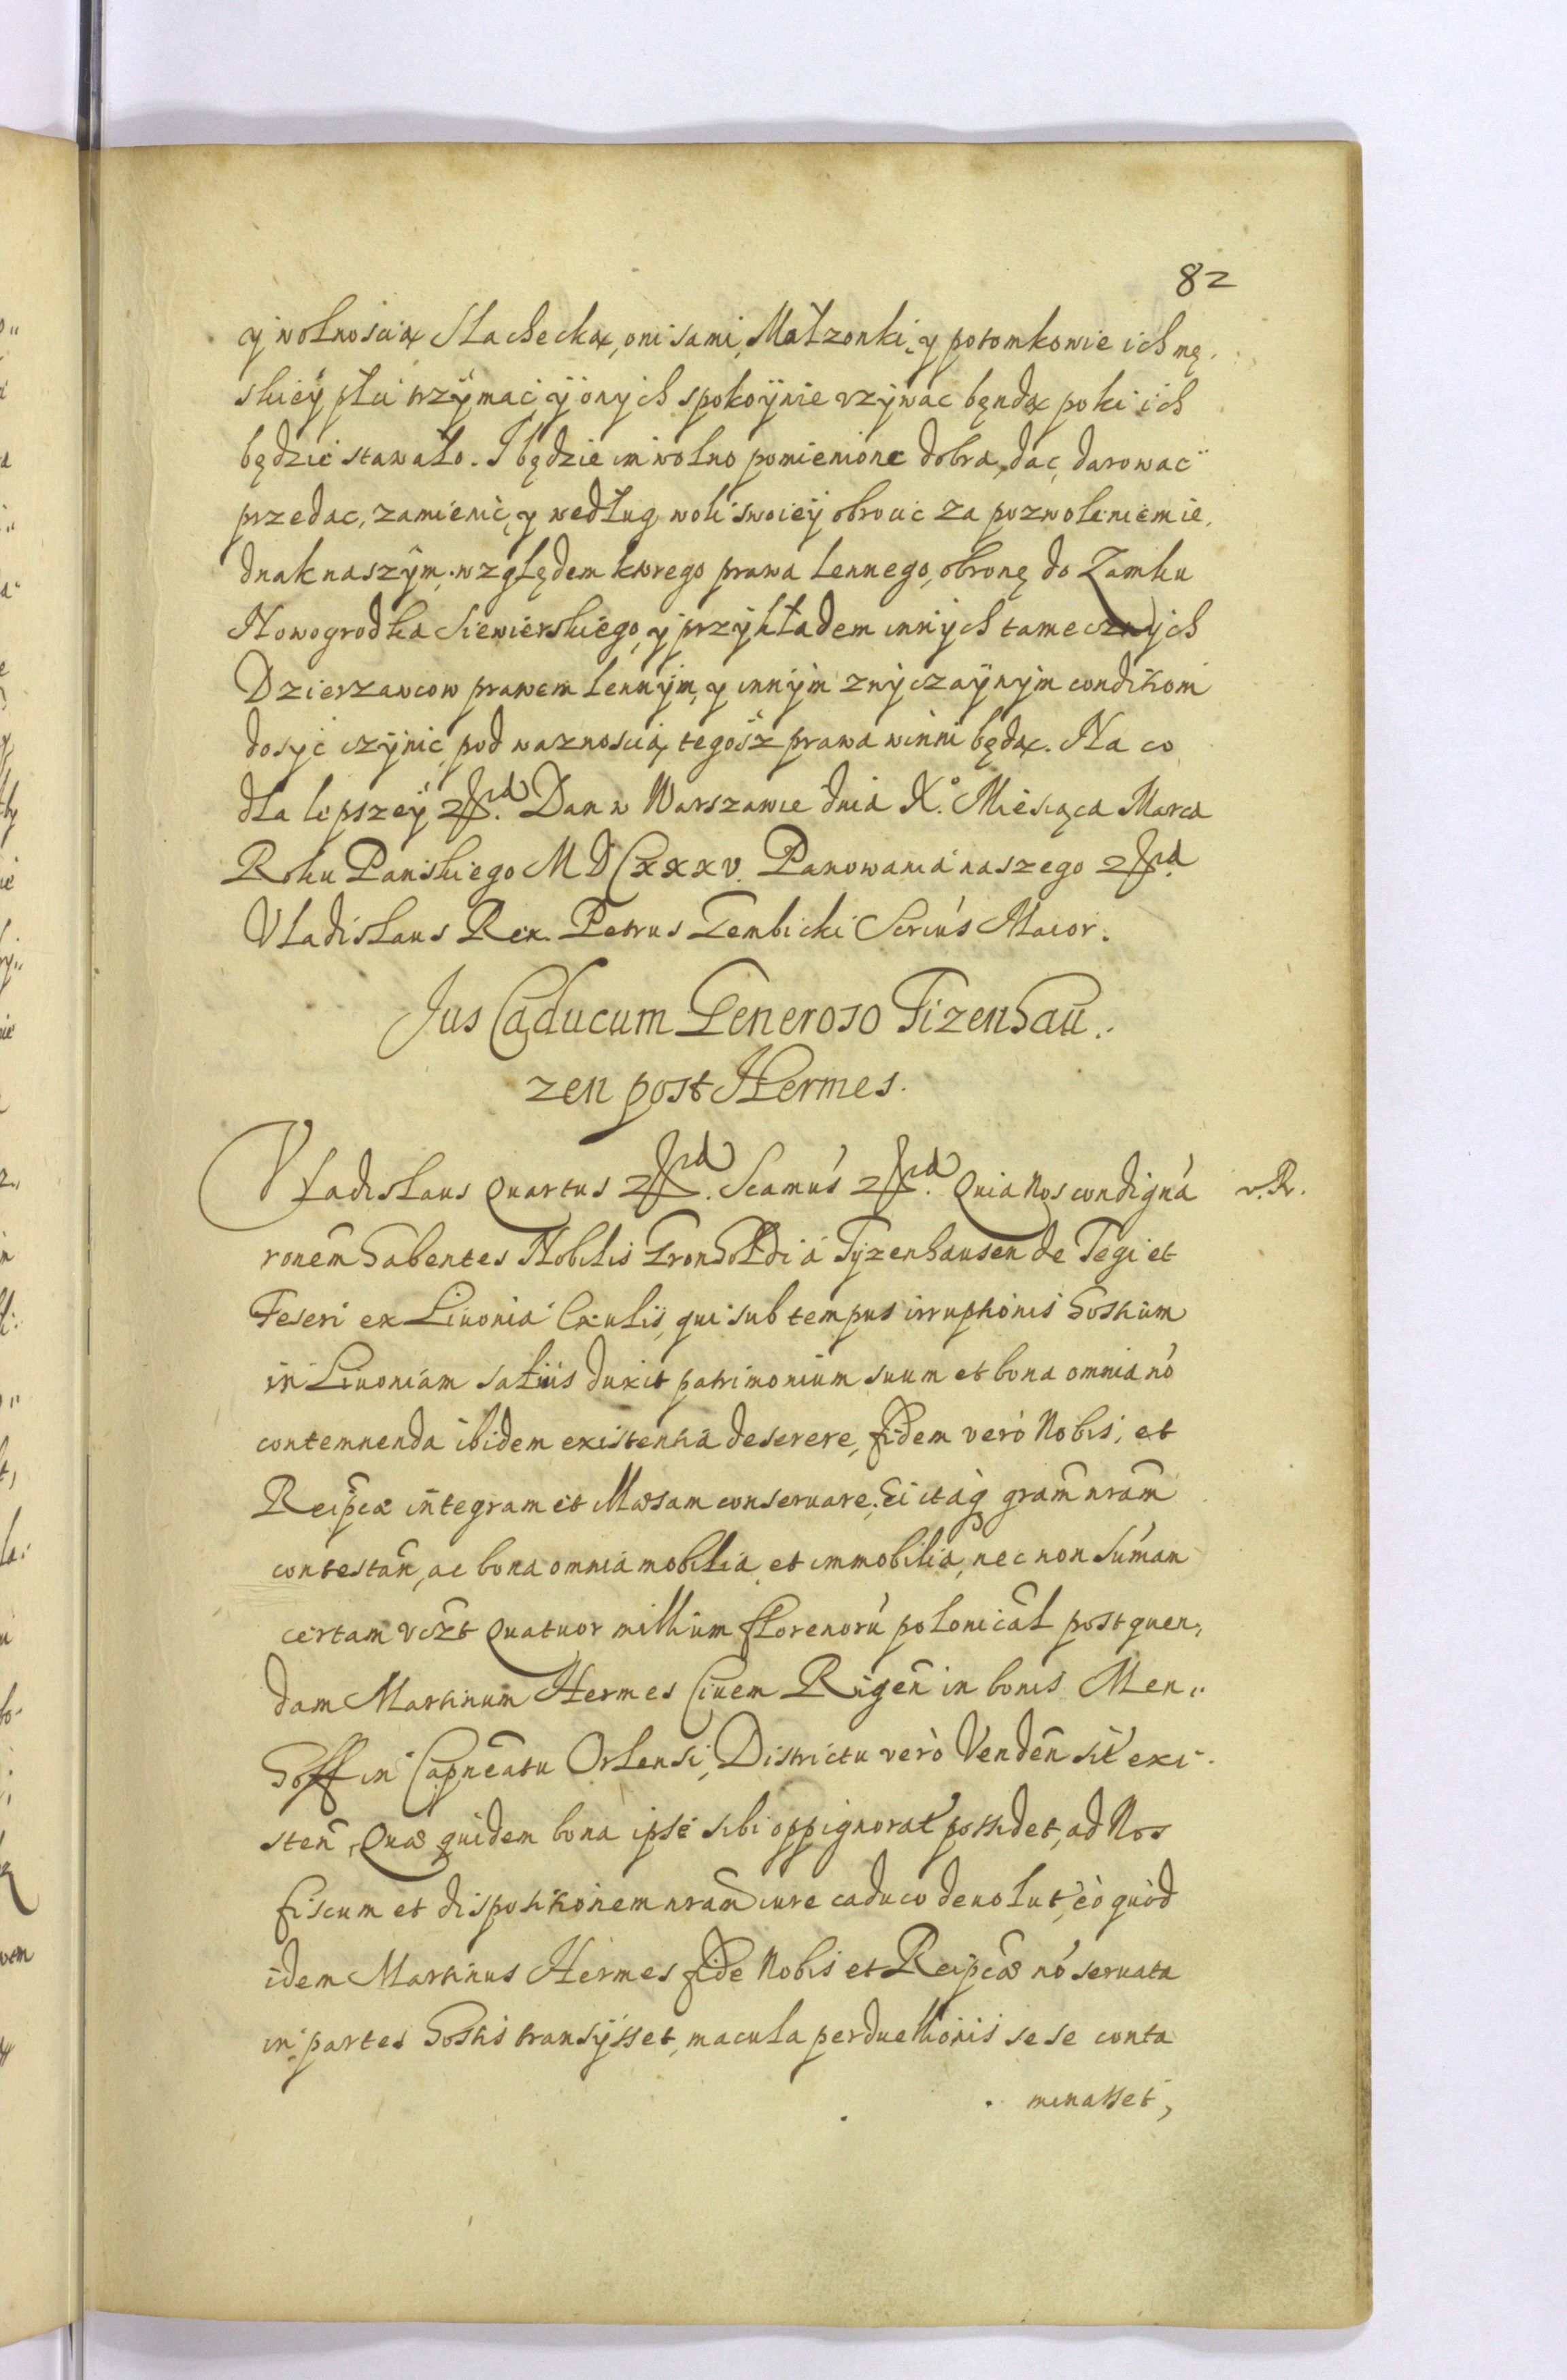 82
y wolnoscią Slachecką, oni sami, Małzonki, y potomkowie ich mę,
skiey płci trzymać, y onych spokoynie vzywac będą poki ich
będzie stawało. I będzie im wolno pomienione dobra, dac, darowac
przedac, zamienić, y według woli swoiey obrocić za pozwoleniem ie,
dnak naszym. względem ktorego prawa lennego, obronę do Zamku
Nowogrodka Siewierskiego, y przykładem innych tamecznych
Dzierzawcow prawem lennym, y innym zwyczaynym conditiom
dosyć czynić, pod waznoscią tegosz prawa winni będą. Na co
dla lepszey etc. Dan w Warszawie dnia X.° Miesiąca Marca
Roku Panskiego MDCxxxv. Panowania naszego etc.
Vladislaus Rex. Petrus Gembicki Scriús Maior.
Jus Caducum Generoso Tizenhau.
zen post Hermes.
Vladislaus Quartus etc. Scamús etc. Quia Nos condigná v. R.
ronem habentes Nobilis Gronholdi á Tyzenhausen de Tegi et
Feseri ex Liuonia Exulis, qui sub tempus irruptionis hostium
in Liuoniam satius duxit patrimonium suum et bona omnia nó
contemnenda ibidem existentia deserere, fidem veró Nobis, et
Reipcæ integram et illæsam conseruare. Ei itaq gram nram
contestan, ac bona omnia mobilia, et immobilia, nec non súmam
certam vczt Quatuor millium florenorú polonical post quen,
dam Martinum Hermes Ciuem Rigen in bonis Men,,
hoff in Capneatu Orlensi, Districtu veró Venden sit exi
sten, Quæ quidem bona ipse sibi oppignorat possidet, ad Nos
fiscum et dispositionem nram iure caduco deuolut, eò quòd
idem Martinus Hermes fide Nobis et Reipcæ nó seruata
in partes hostis transysset, macula perduellionis sese conta
minasset,